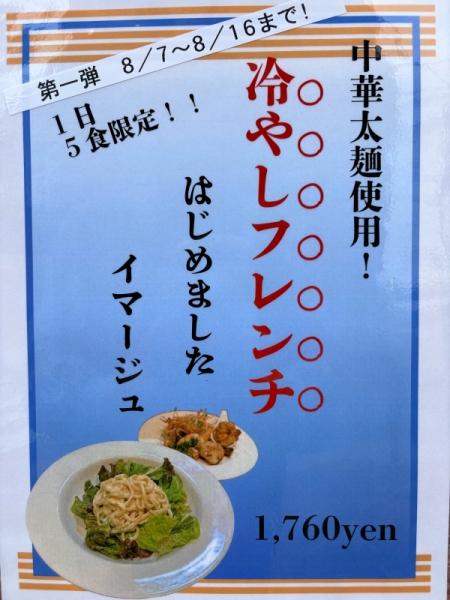 第一弾 8/7～8/16まで!
1日
5食限定!!
中華太麺使用!
○○○○○○○
冷やしフレンチ
はじめました
イマージュ
1,760yen